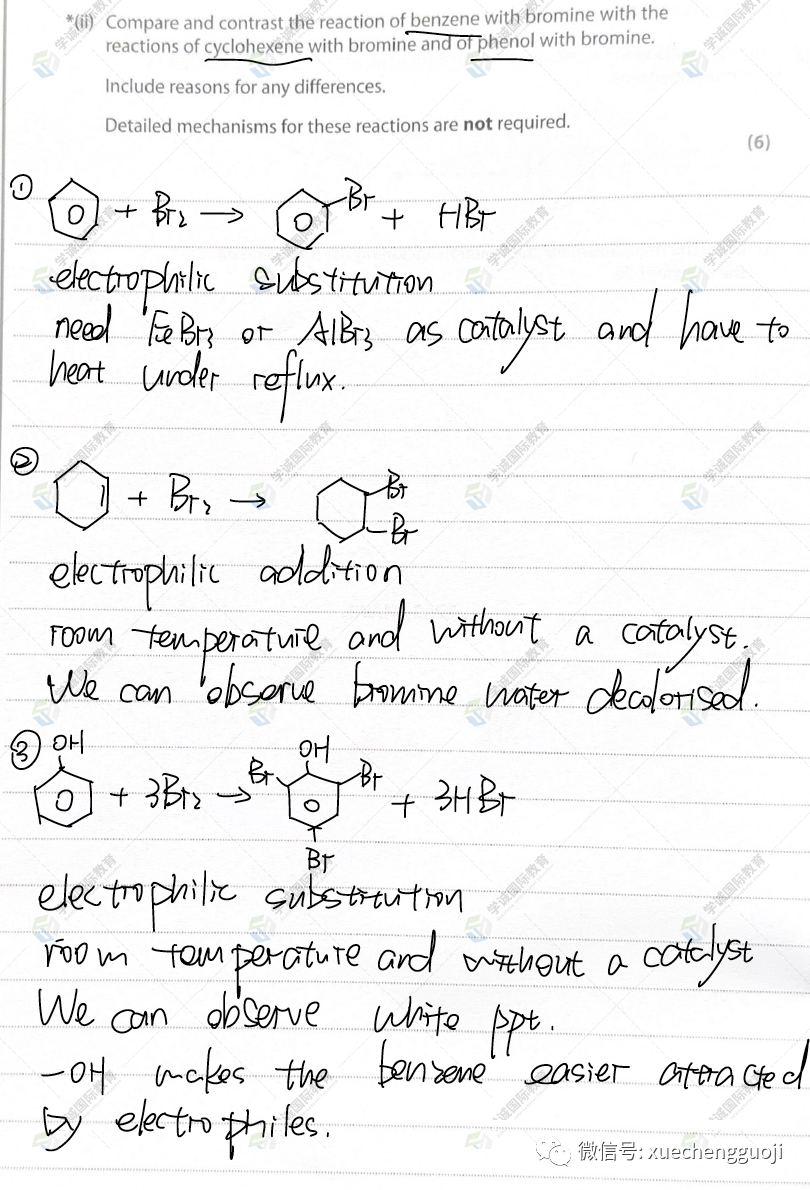 *(ii) Compare and contrast the reaction of benzene with bromine with the
reactions of cyclohexene with bromine and of phenol with bromine.
Include reasons for any differences.
Detailed mechanisms for these reactions are not required.
(6)
① + Br₂ → Br + HBr
electrophilic substitution
need FeBr₃ or AlBr₃ as catalyst and have to
heat under reflux.
② + Br₂ → Br
Br
electrophilic addition
room temperature and without a catalyst.
We can observe bromine water decolorised.
③ OH OH
+ 3Br₂ → Br Br + 3HBr
Br
electrophilic substitution
room temperature and without a catalyst
We can observe white ppt.
-OH makes the benzene easier attracted
by electrophiles.
学诚国际教育
微信号: xuechengguoji